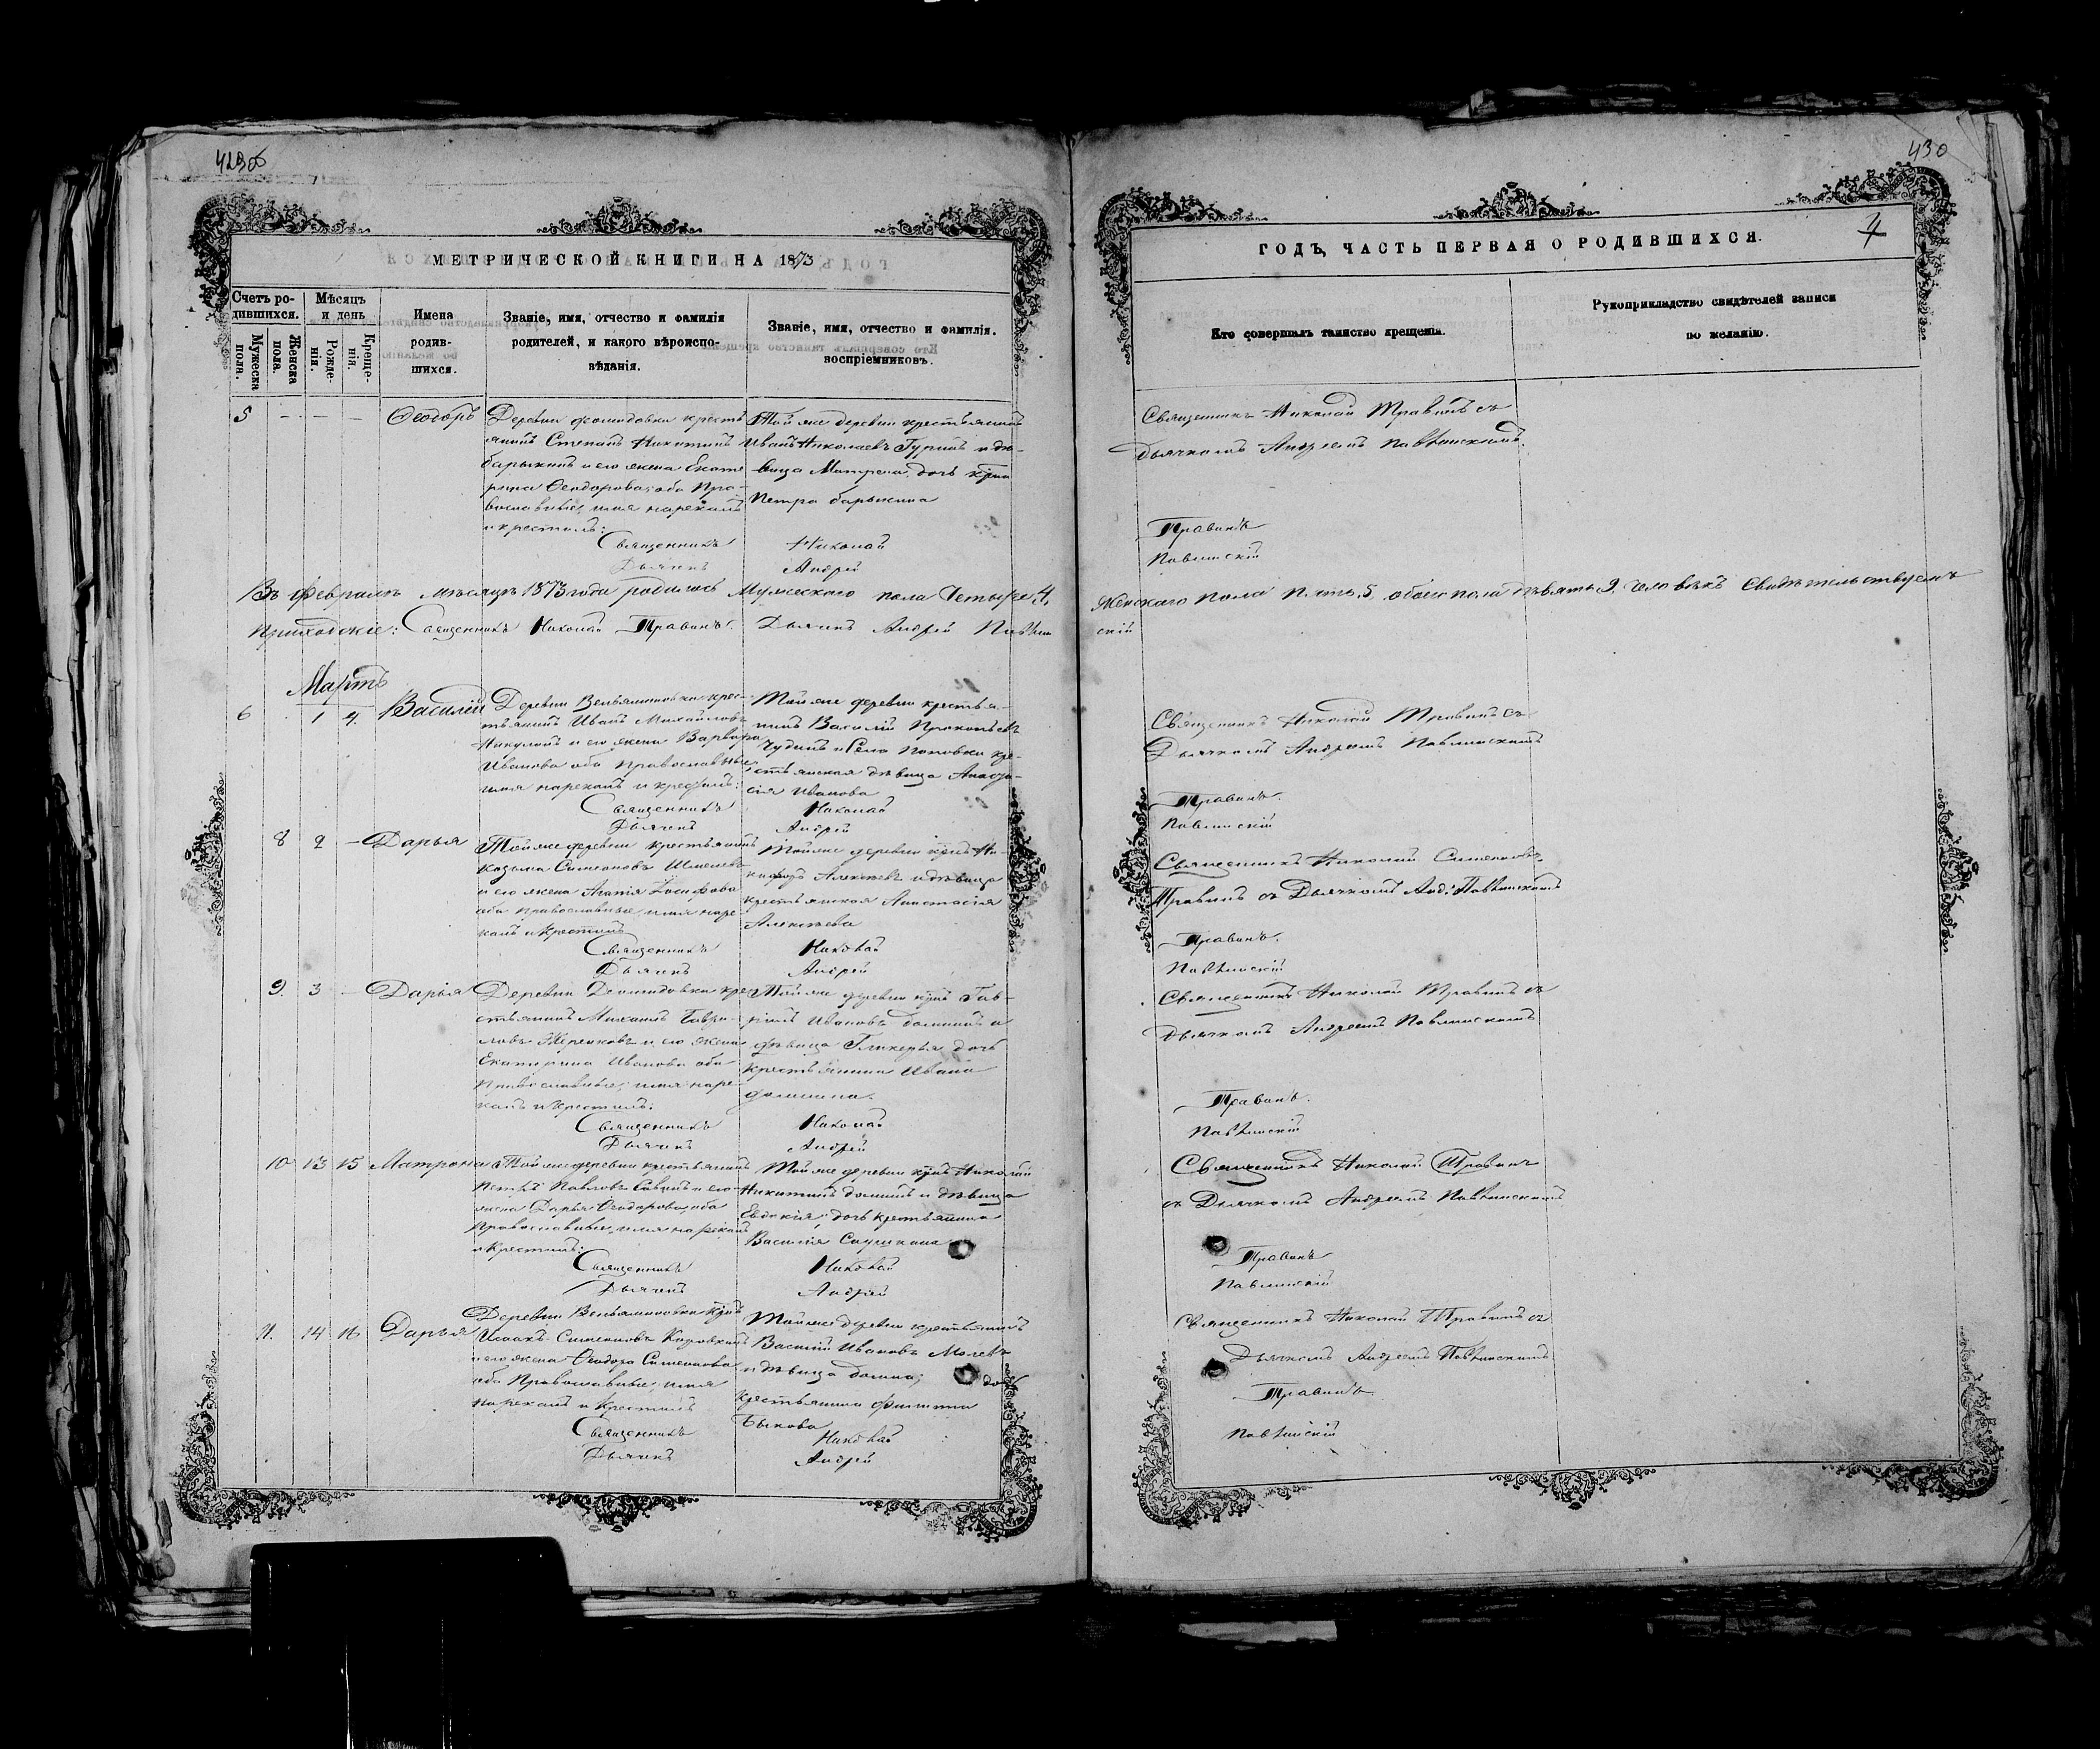 429об
МЕТРИЧЕСКОЙ КНИГИ НА 1873
Счетъ ро-
дившихся.
Мѣсяцъ
и день
Мужеска
пола.
Женска
пола.
Рожде-
нія.
Креще-
нія.
Имена
родив-
шихся.
Званіе, имя, отчество и фамилія
родителей, и какого вѣроиспо-
вѣданія.
Званіе, имя, отчество и фамилія.
воспріемниковъ.
5 - - - Ѳеодоръ
Деревни кресть
янинъ Степанъ Никитинъ
барыкинъ и его жена Екате
рина Ѳеодорова, оба Пра-
вославные, имя нарекалъ
и крестилъ:
Священникъ
Дьячекъ
Той же деревни крестьянинъ
Иванъ Николаевъ Гуринъ и дѣ-
вица Матрена, дочь
Петра барыкина
Николай
Андрей
Въ Февралѣ мѣсяцѣ 1873 года родилось Мужескаго пола Четыре, 4,
Приходскіе: Священникъ Николай Травинъ. Дьячекъ Андрей
Мартъ
6 1 4. Василій
Деревни Вельяминовки крес-
тьянинъ Иванъ Михайловъ
Никулинъ и его жена Варвара
Иванова оба православные,
имя нарекалъ и крестилъ:
Священникъ
Дьячекъ
Той же деревни крестья-
нинъ Василій Прокопьевъ
Чудинъ и Села Поповки кре-
стьянская дѣвица Анаста-
сія Иванова
Николай
Андрей
8 2 - Дарья
Той же деревни крестьянинъ
Козьма Симеоновъ
и его жена Агапія
оба православные, имя наре
калъ и крестилъ
Священникъ
Дьячекъ
Той же деревни Ни-
кифоръ Алексѣевъ и дѣвица
крестьянская Анастасія
Алексѣева
Николай
Андрей
9. 3 - Дарья
Деревни кре-
стьянинъ Михаилъ Гаври-
ловъ и его жена
Екатерина Иванова оба
Православные, имя наре
калъ и крестилъ:
Священникъ
Дьячекъ
Той же деревни Гав-
Ивановъ и
дѣвица Гликерья дочь
крестьянина Ивана
Николай
Андрей
10 13 15 Матрона
Той же деревни крестьянинъ
Петръ Павловъ и его
жена Дарья Ѳеодорова, оба
Православные, имя нарекалъ
и крестилъ:
Священникъ
Дьячекъ
Той же деревни Николай
Никитинъ и дѣвица
Евдокія, дочь крестьянина
Василія
Николай
Андрей
11. 14 16 Дарья
Деревни Вельяминовки
Исаакъ Симеоновъ
и его жена Ѳеодора Симеонова
оба Православные, имя
нарекалъ и крестилъ
Священникъ
Дьячекъ
Той же деревни крестьянинъ
Василій Ивановъ
и дѣвица дочь
крестьянина Филиппа
Быкова
Николай
Андрей
430
4
ГОДЪ, ЧАСТЬ ПЕРВАЯ О РОДИВШИХСЯ.
Кто совершалъ таинство крещенія.
Рукоприкладство свидѣтелей записи
по желанію.
Священникъ Николай Травинъ съ
Дьячкомъ Андреемъ Павлинскимъ.
Травинъ
Павлинскій
Женскаго пола пять, 5, обоего пола девять, 9, человѣкъ Свидѣтельствуемъ
скій
Священникъ Николай Травинъ съ
Дьячкомъ Андреемъ Павлинскимъ
Травинъ.
Павлинскій
Священникъ Николай Симеоновъ
Травинъ съ Дьячкомъ Анд. Павлинскимъ
Травинъ.
Павлинскій
Священникъ Николай Травинъ съ
Дьячкомъ Андреемъ Павлинскимъ
Травинъ.
Павлинскій
Священникъ Николай Травинъ
съ Дьячкомъ Андреемъ Павлинскимъ
Травинъ
Павлинскій
Священникъ Николай Травинъ съ
Дьячкомъ Андреемъ Павлинскимъ
Травинъ
Павлинскій